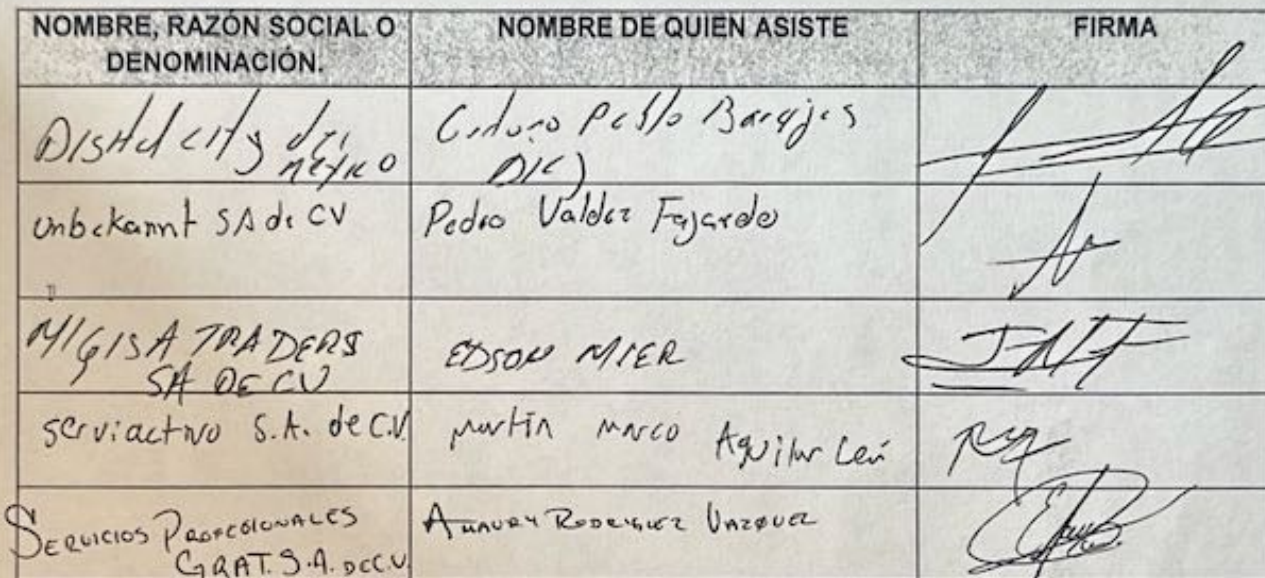 NOMBRE, RAZÓN SOCIAL O
DENOMINACIÓN.
NOMBRE DE QUIEN ASISTE
FIRMA
city de
mexico
Pablo Barajas
Unbekannt SA de CV
Pedro Valdez Fajardo
MIGISA TRADERS
SA DE CV
EDSON MIER
serviactivo S.A. de C.V.
Martín Marco Aguilar León
SERVICIOS PROFESIONALES
GRAT. S.A. DE C.V.
AMAURY RODRIGUEZ VAZQUEZ